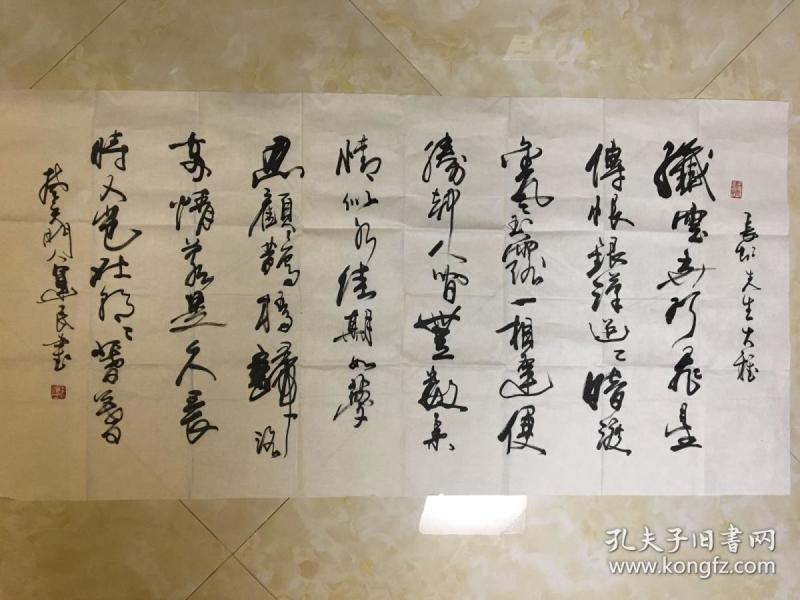 長虹先生大雅
纖雲弄巧飛星
傳恨銀漢迢〻暗渡
金風玉露一相逢便
勝卻人間無數柔
情似水佳期如夢
忍顧鵲橋歸路
兩情若是久長
時又豈在朝〻暮暮
民書
孔夫子旧书网
www.kongfz.com